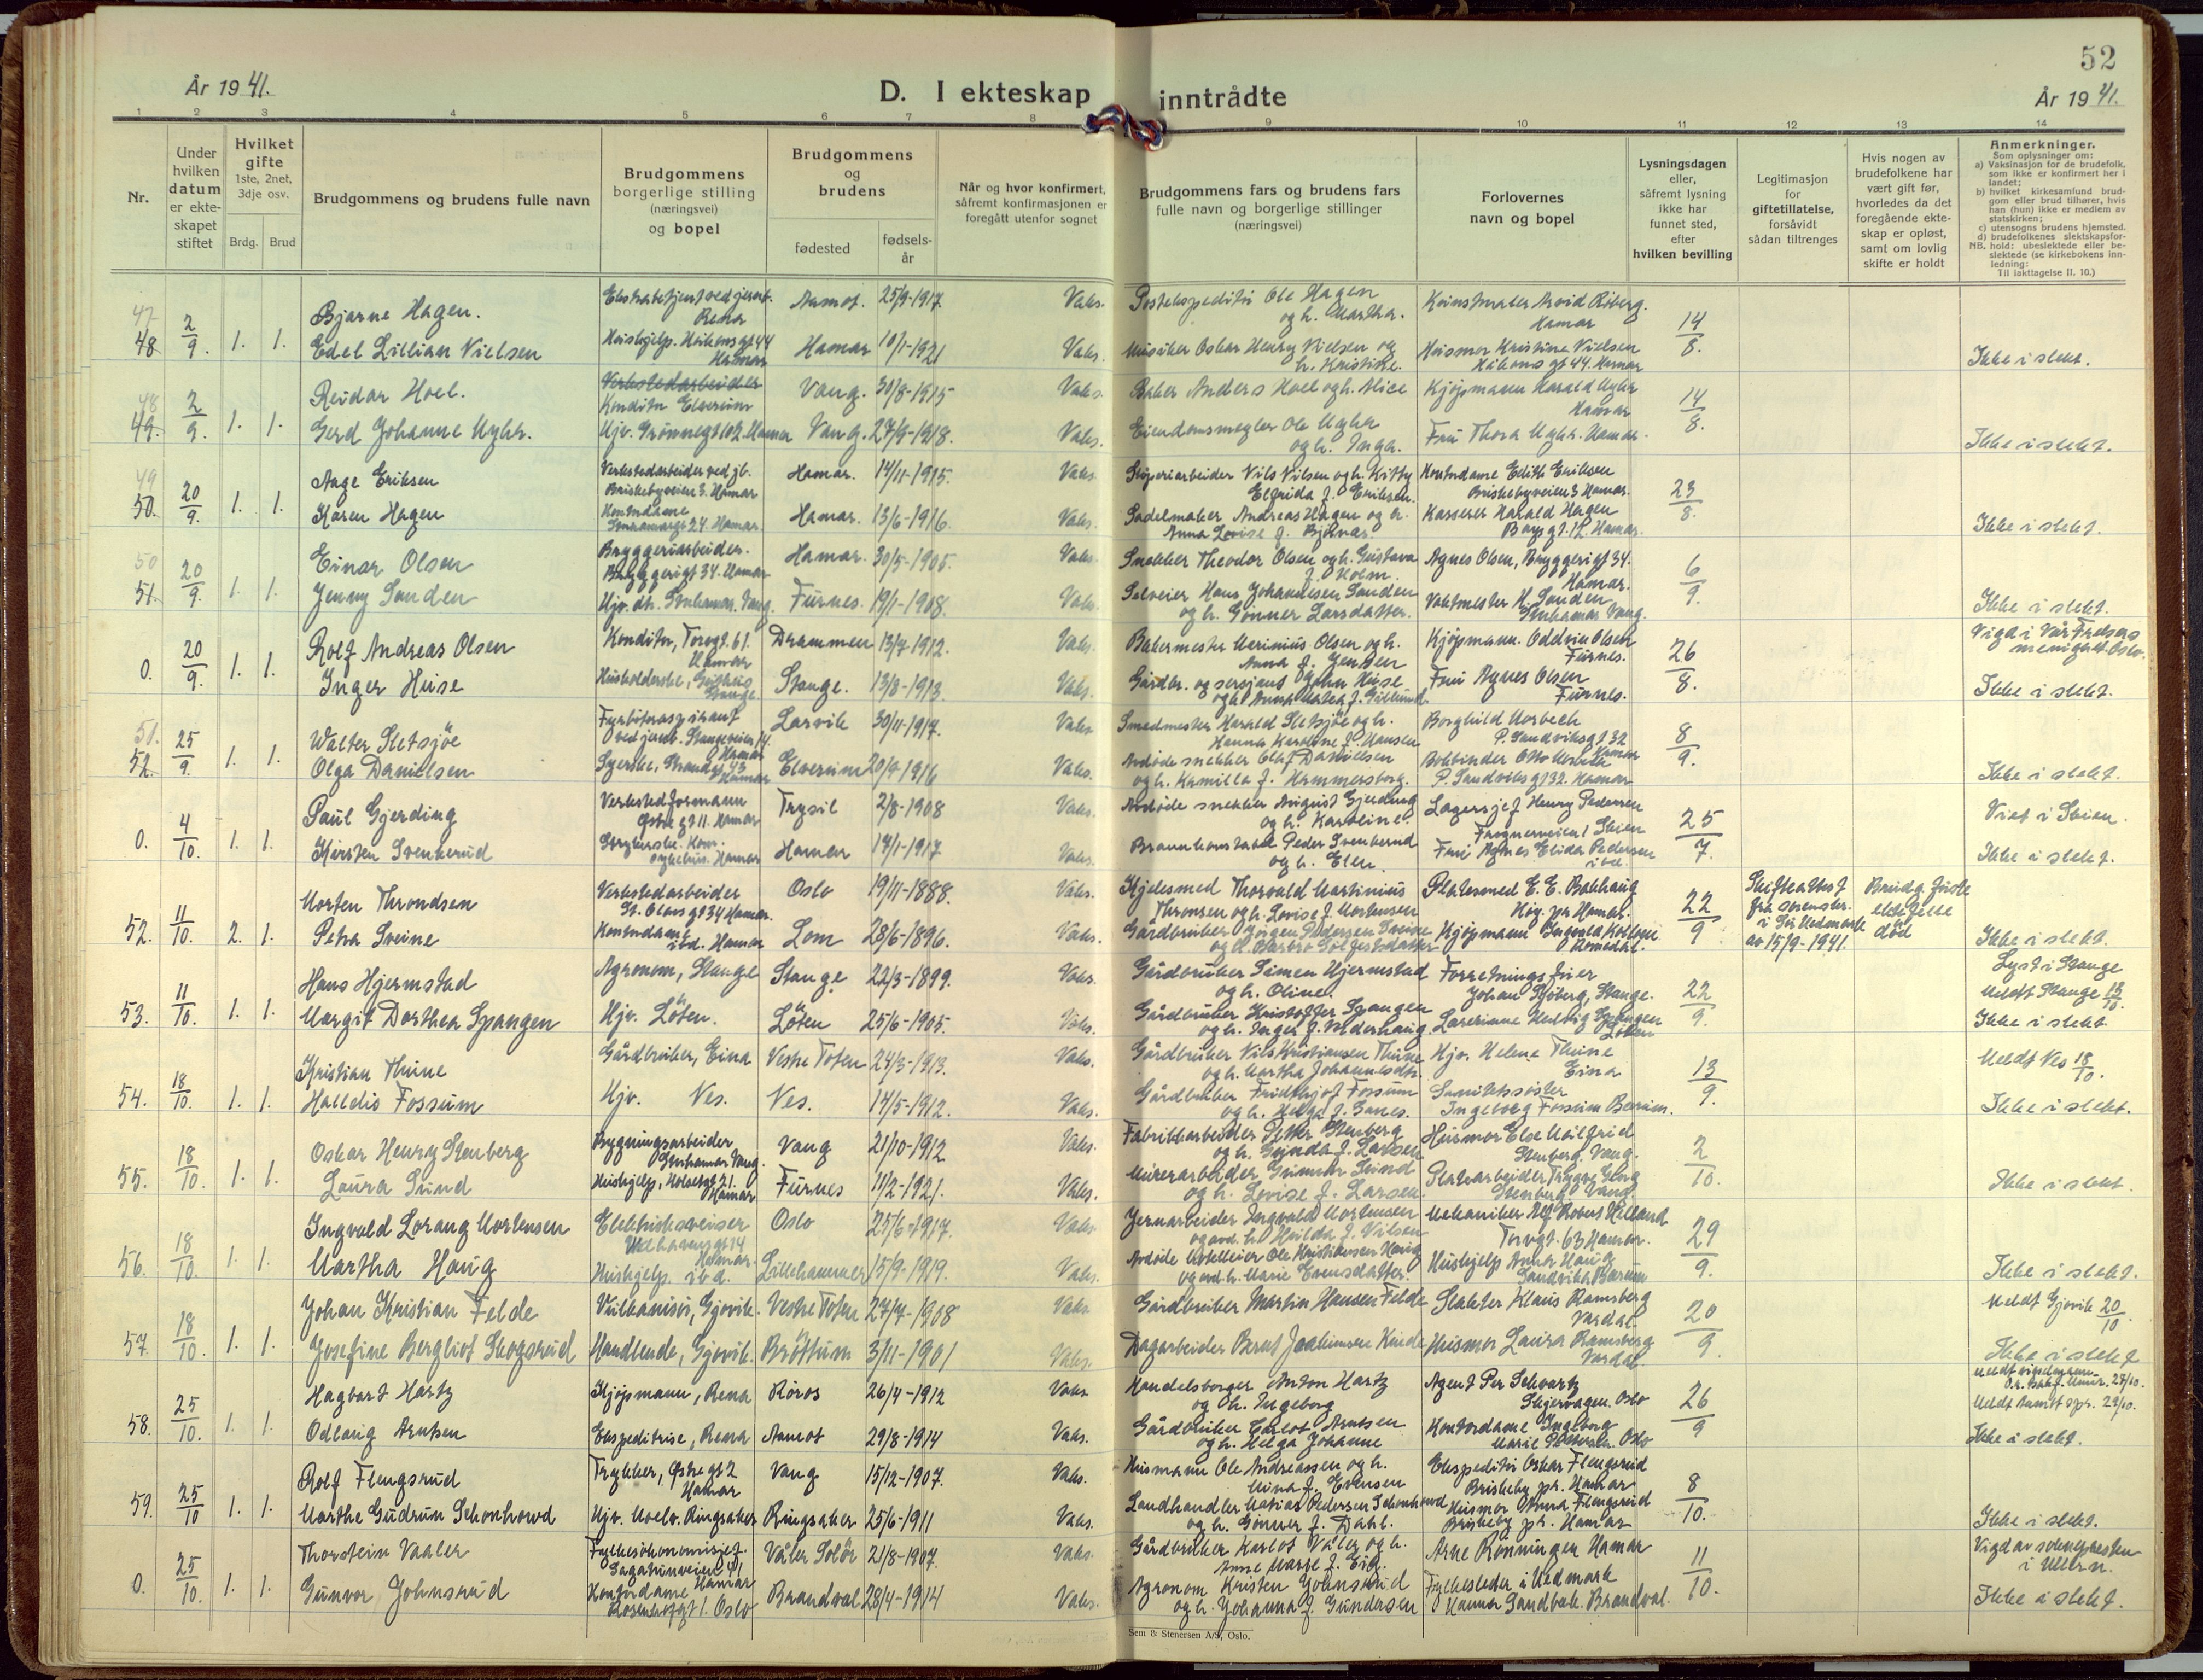 52
År 1941.
D. I ekteskap inntrådte
År 1941.
1 2 3 4 5 6 7 8 9 10 11 12 13 14
Nr.
Under hvilken datum er ekteskapet stiftet
Hvilket gifte 1ste, 2net, 3dje osv.
Brdg. Brud
Brudgommens og brudens fulle navn
Brudgommens borgerlige stilling (næringsvei) og bopel
Brudgommens og brudens
fødested
fødselsår
Når og hvor konfirmert, såfremt konfirmasjonen er foregått utenfor sognet
Brudgommens fars og brudens fars fulle navn og borgerlige stillinger (næringsvei)
Forlovernes navn og bopel
Lysningsdagen eller, såfremt lysning ikke har funnet sted, efter hvilken bevilling
Legitimasjon for giftetillatelse, forsåvidt sådan tiltrenges
Hvis nogen av brudefolkene har vært gift før, hvorledes da det foregående ekteskap er opløst, samt om lovlig skifte er holdt
Anmerkninger.
Som oplysninger om:
a) Vaksinasjon for de brudefolk, som ikke er konfirmert her i landet;
b) hvilket kirkesamfund brudgom eller brud tilhører, hvis han (hun) ikke er medlem av statskirken;
c) utensogns brudens hjemsted.
d) brudefolkenes slektskapsforhold: ubeslektede eller beslektede (se kirkebokens innledning:
NB.
Til iakttagelse II. 10.)
47 Bjarne Hagen. Rena Aamot. 25/9-1917. Vaks. Postekspeditør Ole Hagen og h. Martha. Hamar
48 2/9. 1. 1. Edel Lillian Nielsen Hushjelp. Håkonsgt 44 Hamar Hamar 10/1-1921 Vaks. Musiker Oskar Henry Nielsen og h. Kristine. Husmor Kristine Nielsen Håkonsgt 44. Hamar 14/8. Ikke i slekt.
48 Reidar Hoel. Verkstedarbeider Konditor Elverum Vang. 30/8-1915 Vaks Baker Anders Hoel og h. Alice Kjøpmann Harald Myhr Hamar
49. 2/9. 1. 1. Gerd Johanne Myhr. Hjv. Grønnegt 102. Hamar Vang. 27/9-1918. Vaks. Eiendomsmegler Ole Myhr og h. Inga. Fru Thora Myhr. Hamar. 14/8. Ikke i slekt.
49 Aage Eriksen Verkstedarbeider ved jb. Briskebyveien 3. Hamar Hamar. 14/11-1915. Vaks. Støperiarbeider Nils Nilsen og h. Kitty Elfrida f. Eriksen. Kontordame Edith Eriksen Briskebyveien 3 Hamar.
50. 20/9. 1. 1. Karen Hagen Kontordame Hamar. Hamar. 13/6-1916. Vaks. Sadelmaker Andreas Hagen og h. Anna Lovise f. Kasserer Harald Hagen Hamar. 23/8. Ikke i slekt.
50 Einar Olsen Bryggeriarbeider. Bryggerigt 34. Hamar Hamar. 30/5-1905. Vaks. Snekker Theodor Olsen og h. Gustava f. Holm. Agnes Olsen, Bryggerigt 34. Hamar.
51. 20/9. 1. 1. Jenny Sanden Hjv. dtr. Storhamar. Vang. Furnes. 19/1-1908. Vaks. Selveier Hans Johannesen Sanden og h. Gunner Larsdatter. Vaktmester H. Sanden. Storhamar Vang. 6/9. Ikke i slekt.
Rolf Andreas Olsen Konditor, Torvgt. 61. Hamar Drammen 13/7-1912. Vaks. Bakermester Marinius Olsen og h. Anna f. Jensen Kjøpmann. Oddvin Olsen Furnes. Vigd i Vår Frelsers menighet Oslo.
0. 20/9. 1. 1. Inger Huse Stange. Stange. 13/8-1913. Vaks. Gårdbr. og sersjant John Huse Fru Agnes Olsen Furnes. 26/8. Ikke i slekt.
51. Walter Sletsjöe Fyrbøteraspirant ved jernb. Stangeveien 14. Hamar Larvik 30/11-1917. Vaks Smedmester Harald Sletsjöe og h. Hanna Karoline f. Hansen Borghild Morbech P. Sandviksgt 32 Hamar
52. 25/9. 1. 1. Olga Danielsen Syerske, Strandgt 43 Hamar Elverum 20/9-1916 Vaks. Avdøde snekker Olaf Danielsen og h. Kamilla f. Hammersborg. Bokbinder P. Sandviksgt 32. Hamar 8/9. Ikke i slekt.
Paul Gjerding Verkstedformann Østregt 11. Hamar Trysil 2/8-1908 Vaks. Avdøde snekker August Gjerding og h. Karoline. Lagersjef Henry Pedersen Skien Viet i Skien.
0. 4/10. 1. 1. Kirsten Svenkerud Hamar Hamar 14/1-1917 Vaks. Brannkonstabel Peder Svenkerud og h. Elen. Fru Agnes Elida Pedersen ibd. 25/7. Ikke i slekt.
Morten Throndsen Verkstedarbeider St. Olavsgt 34 Hamar. Oslo 19/11-1888. Vaks. Kjelesmed Thorvald Martinius Thronsen og h. Lovise f. Mortensen Platesmed E. E. Bakhaug Høig. pr Hamar. Skifteattest fra sorenskr. i Sør Hedmark av 15/9-1941. Brudg. første ektefelle død
52. 11/10. 2. 1. Petra Sveine Kontordame ibd. Hamar Lom 28/6-1896. Vaks. Gårdbruker Jörgen Pedersen Sveine Kjøpmann Romedal. 22/9 Ikke i slekt.
Hans Hjermstad Agronom, Stange Stange 22/3-1899. Vaks. Gårdbruker Simen Hjermstad og h. Oline. Forretningsfører Johan Sjøberg, Stange. Lyst i Stange Meldt Stange 13/10.
53. 11/10. 1. 1. Margit Dorthea Spangen Hjv. Löten. Löten 25/6-1905. Vaks. Gårdbruker Kristoffer Spangen og h. Inger f. Lærerinne Hedvig Spangen Löten 22/9. Ikke i slekt
Kristian Thune Gårdbruker, Eina Vestre Toten 24/3-1913. Vaks. Gårdbruker Nils Kristiansen Thune og h. Martha Johannesdtr. Hjv. Helene Thune Eina Meldt Nes 18/10.
54. 18/10. 1. 1. Halldis Fossum Hjv. Nes. Nes. 14/5-1912. Vaks. Gårdbruker Fridthjof Fossum og h. Helga f. Sanitetssøster Ingeborg Fossum Bærum. 13/9. Ikke i slekt.
Oskar Henry Stenberg Bygningsarbeider Storhamar Vang. Vang 21/10-1912 Vaks. Fabrikkarbeider Petter Stenberg og h. Gunda f. Larsen Husmor Else Stenberg. Vang.
55. 18/10. 1. 1. Laura Lund Hushjelp, Holsetgt 21. Hamar Furnes 11/2-1921. Vaks. Murerarbeider Gunnar Lund og h. Lovise f. Larsen. Stenberg Vang 2/10. Ikke i slekt.
Ingvald Lorang Mortensen Elektrisksveiser Hamar Oslo 25/6-1917. Vaks. Jernarbeider Ingvald Mortensen og avd. h. Hulda f. Nilsen Mekaniker Alf Robert Helland Torvgt. 63 Hamar.
56. 18/10. 1. 1. Martha Haug Hushjelp. ibd. Lillehammer 15/9-1919. Vaks. Avdøde Hotelleier Ole Kristiansen Haug og avd. h. Marie Evensdatter. Hushjelp Anna Haug Sandvika Bærum 29/9. Ikke i slekt.
Johan Kristian Felde Vulkanisør, Gjøvik. Vestre Toten 27/7-1908 Vaks Gårdbruker Martin Hansen Felde Slakter Klaus Ramsberg Vardal. Meldt Gjøvik 20/10.
57. 18/10. 1. 1. Josefine Bergliot Skogsrud Handlende, Gjøvik. Bröttum 3/11-1901 Vaks. Dagarbeider Bernt Joakimsen Husmor Laura Ramsberg Vardal. 20/9. Ikke i slekt
Hagbart Hartz Kjøpmann, Rena Røros 26/4-1912 Vaks Handelsborger Anton Hartz og h. Ingeborg Agent Per Schvartz Skjervagen. Oslo
58. 25/10. 1. 1. Odlaug Arntsen Ekspeditrise, Rena Aamot 29/8-1914 Vaks. Gårdbruker Carlot Arntsen og h. Helga Johanne Kontordame Ingeborg Marie Oslo 26/9 Ikke i slekt.
Rolf Flengsrud Trykker, Østregt 2 Hamar Vang 15/12-1907. Vaks. Husmann Ole Andreassen og h. Mina f. Evensen Ekspeditør Oskar Flengsrud Briskeby pr. Hamar
59. 25/10 1. 1. Marthe Gudrun Schonhowd Hjv. Moelv. Ringsaker Ringsaker 25/6-1911 Vaks. Landhandler Matias Pedersen Schonhowd og h. Gunner f. Dahl. Husmor Anna Flengsrud Briskeby pr. Hamar 8/10. Ikke i slekt.
Thorstein Vaaler Hamar Våler Solör 21/8-1907. Vaks. Gårdbruker Karlot Våler og h. Arne Rønningen Hamar Fylkesleder i Hedmark Vigd av soknepresten i Ullern.
0. 25/10. 1. 1. Gunvor Johnsrud Kontordame Rosenhofgt 1. Oslo Brandval 28/4-1914 Vaks. Agronom Kristen Johnsrud og h. Johanna f. Gundersen Hanna Sandbak. Brandval. 11/10. Ikke i slekt.
Sem & Stenersen A/S, Oslo.